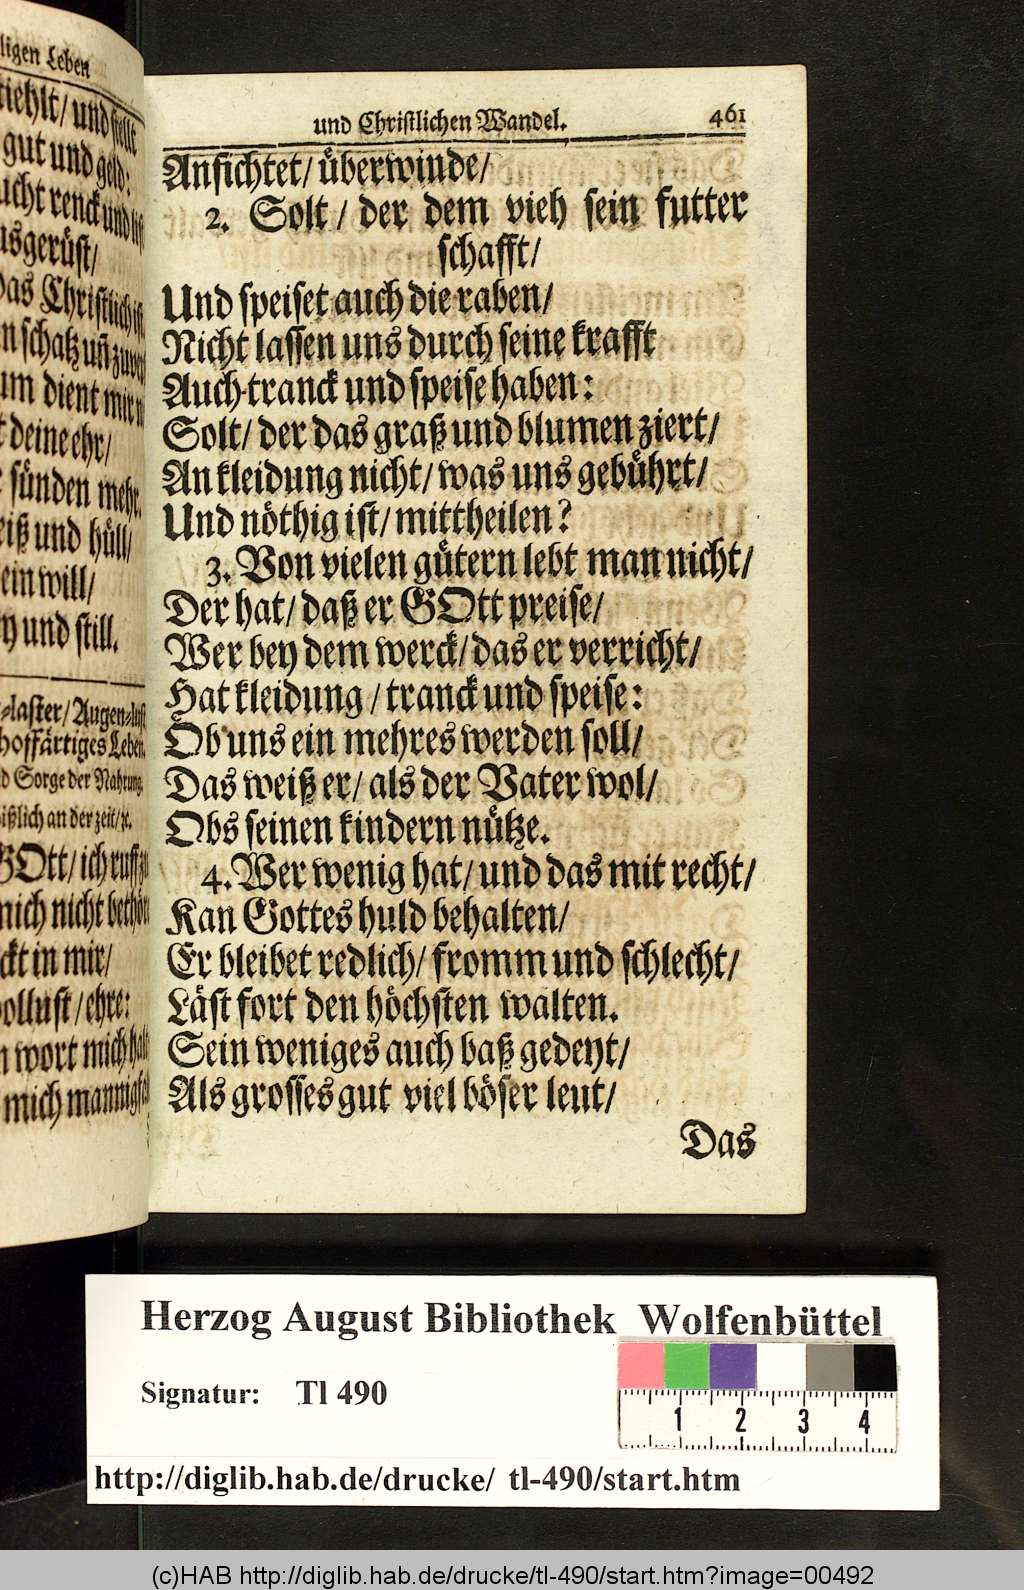 ligen Leben
gut und geld:
usgerüst/
das Christlich
n schatz uñ
um dient mir
deine ehr/
sünden mehr.
und hüll/
ein will/
und still.
laster/ Augen-lust
hoffärtiges Leben.
d Sorge der Nahrung.
ißlich an der zeit/ ꝛc.
GOtt/ ich ruff zu
mich nicht bethör
ckt in mir/
ollust/ ehre:
wort mich
mich mannigfal
und Christlichen Wandel. 461
Anfichtet/ überwinde/
2. Solt/ der dem vieh sein futter
schafft/
Und speiset auch die raben/
Nicht lassen uns durch seine krafft
Auch tranck und speise haben:
Solt/ der das graß und blumen ziert/
An kleidung nicht/ was uns gebührt/
Und nöthig ist/ mittheilen?
3. Von vielen gütern lebt man nicht/
Der hat/ daß er GOtt preise/
Wer bey dem werck/ das er verricht/
Hat kleidung/ tranck und speise:
Ob uns ein mehres werden soll/
Das weiß er/ als der Vater wol/
Obs seinen kindern nütze.
4. Wer wenig hat/ und das mit recht/
Kan Gottes huld behalten/
Er bleibet redlich/ fromm und schlecht/
Läst fort den höchsten walten.
Sein weniges auch baß gedeyt/
Als grosses gut viel böser leut/
Das
Herzog August Bibliothek Wolfenbüttel
Signatur: Tl 490
1 2 3 4
http://diglib.hab.de/drucke/ tl-490/start.htm
(c)HAB http://diglib.hab.de/drucke/tl-490/start.htm?image=00492